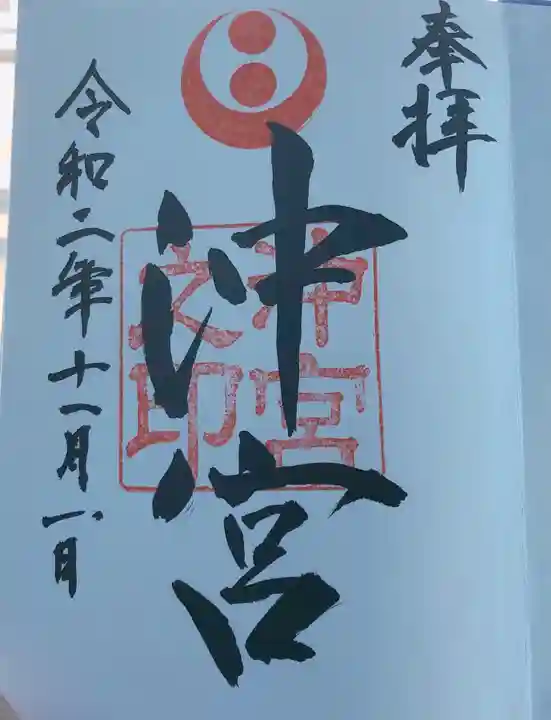 奉拝
沖宮
沖宮
之印
令和二年十一月一日